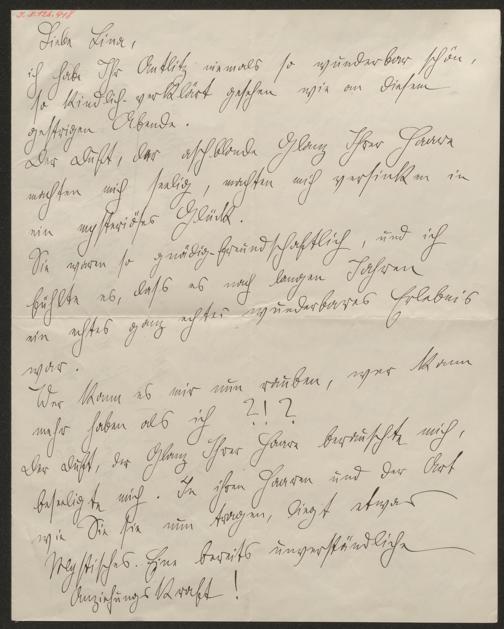 Liebe Lina,
ich habe Ihr Antlitz niemals so wunderbar schön,
so kindlich-verklärt gesehen wie an diesem
gestrigen Abende.
Der Duft, der aschblonde Glanz Ihrer Haare
machten mich seelig, machten mich versinken in
ein mysteriöses Glück.
Sie waren so gnädig-freundschaftlich, und ich
fühlte es, dass es nach langen Jahren
ein echtes ganz echtes wunderbares Erlebnis
war.
Wer kann es mir nun rauben, wer kann
mehr haben als ich ?!?
Der Duft, der Glanz Ihrer Haare berauschte mich,
beseeligte mich. In ihren Haaren und der Art
wie Sie sie nun tragen, liegt etwas
Mystisches. Eine bereits unverständliche
Anziehungskraft!